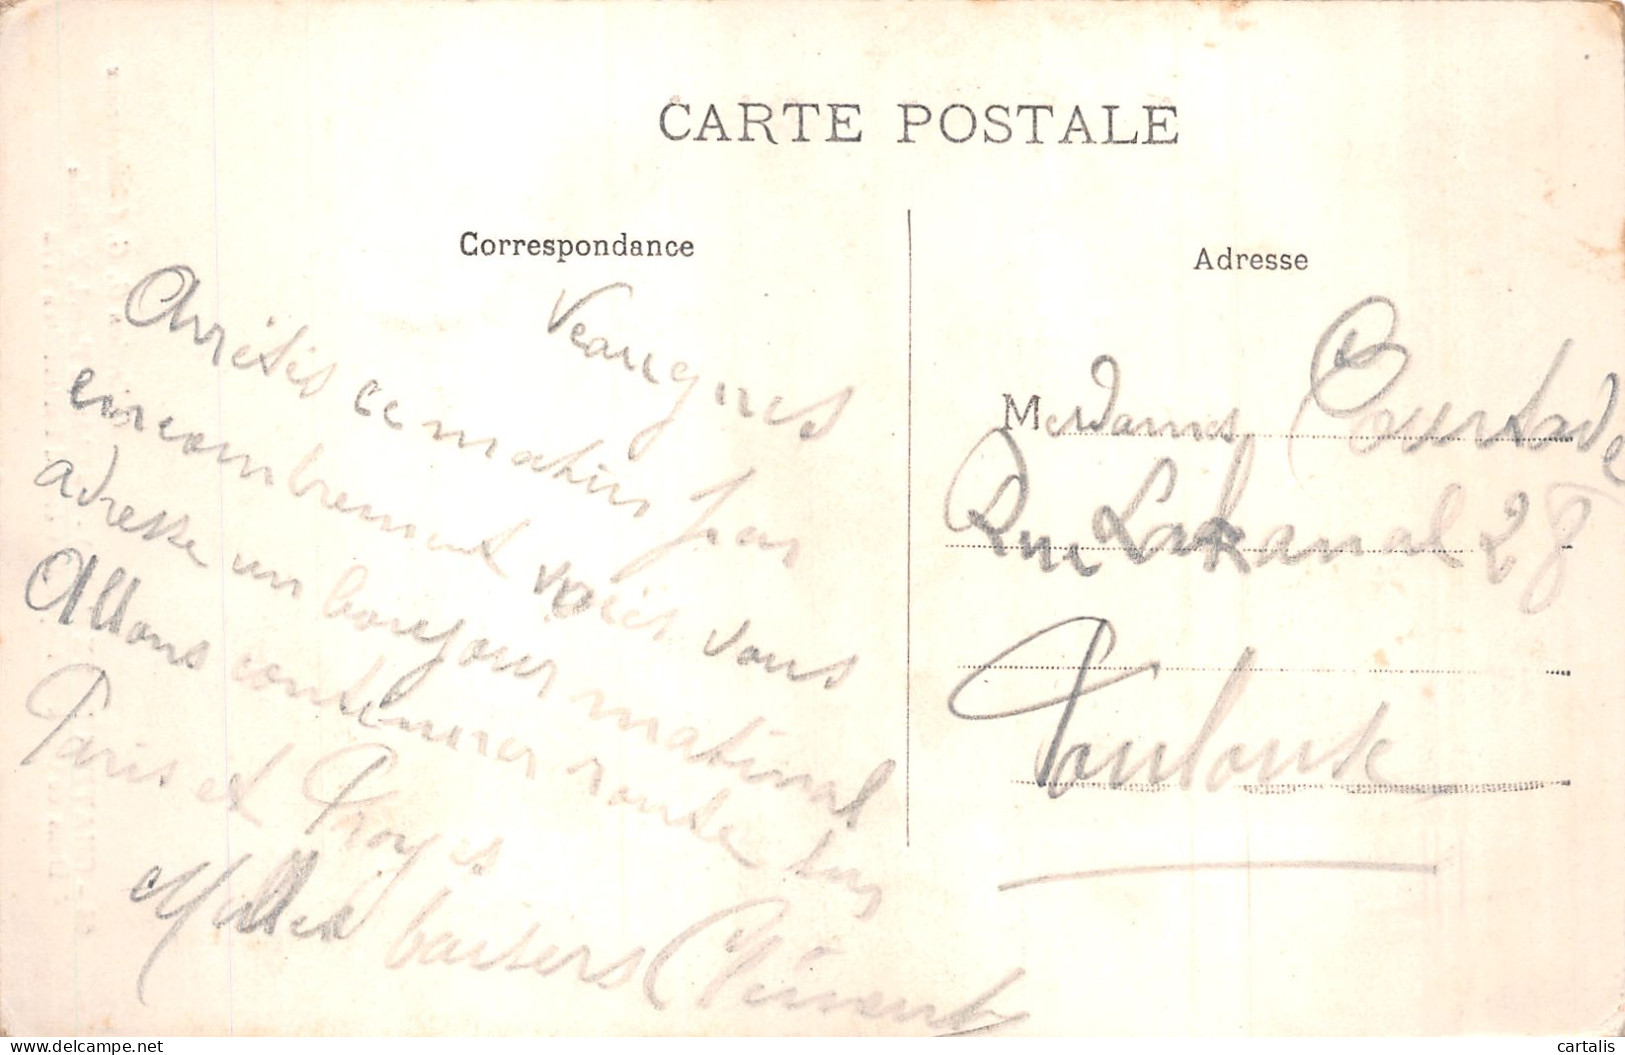 CARTE POSTALE
Correspondance
Adresse
Arrêtés ce matin par
encombrement voies vous
adresse un bonjour matinal
Allons continuer route sur
Paris et Troyes
Milles baisers Clément
Mesdames Courtade
Rue Lakanal 28
Toulouse
cartalis